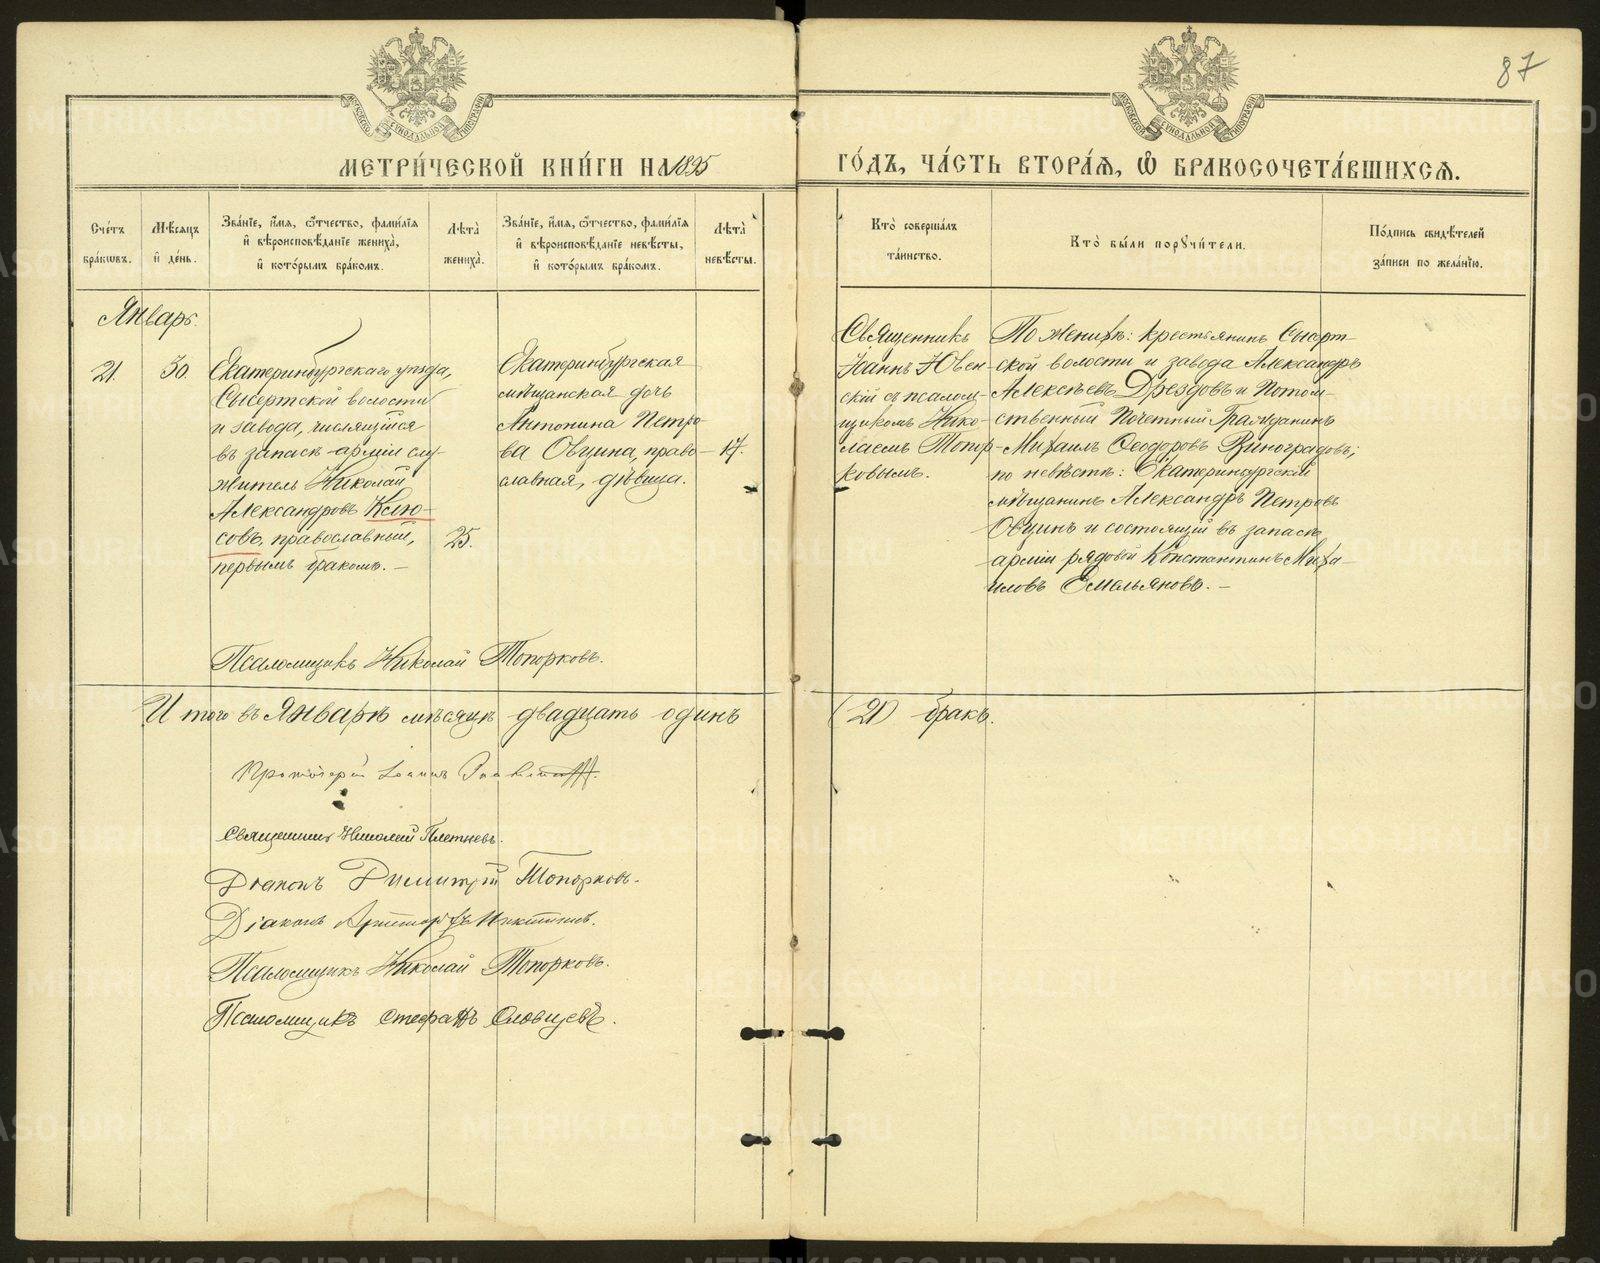 87
МЕТРИ́ЧЕСКОЙ КНИ́ГИ НА 1895
ГО́ДЪ, ЧА́СТЬ ВТОРА́Я, Ѡ БРАКОСОЧЕТА́ВШИХСЯ.
Сче́тъ бра́кѡвъ.
Мѣ́сяцъ и҆ де́нь.
Зва́нїе, и҆́мя, ѻ҆́тчество, фами́лїя
и҆ вѣроисповѣ́данїе жениха̀,
и҆ кото́рымъ бра́комъ.
Лѣ́та̀ жениха̀.
Зва́нїе, и҆́мя, ѻ҆́тчество, фами́лїя
и҆ вѣроисповѣ́данїе невѣ́сты,
и҆ кото́рымъ бра́комъ.
Лѣ́та̀ невѣ́сты.
Кто̀ соверша́лъ та́инство.
Кто̀ бы́ли порꙋчи́тели.
По́дпись свидѣ́телей за́писи по жела́нїю.
Январь.
21.
30.
Екатеринбургскаго уѣзда,
Сысертской волости
и завода, числящійся
въ запасѣ арміи слу-
житель Николай
Александровъ Клю-
совъ, православный,
первымъ бракомъ. —
25.
Екатеринбургская
мѣщанская дочь
Антонина Петро-
ва Овцина, право-
славная, дѣвица.
17.
Священникъ
Іоаннъ Ювен-
скій съ псалом-
щикомъ Нико-
лаемъ Топор-
ковымъ.
По женихѣ: крестьянинъ Сысерт-
ской волости и завода Александръ
Алексѣевъ Дрездовъ и Потом-
ственный Почетный Гражданинъ
Михаилъ Ѳеодоровъ Виноградовъ;
по невѣстѣ: Екатеринбургскій
мѣщанинъ Александръ Петровъ
Овцинъ и состоящій въ запасѣ
арміи рядовой Константинъ Миха-
иловъ Емельяновъ. —
Псаломщикъ Николай Топорковъ.
Итого въ Январѣ мѣсяцѣ двадцать одинъ
(21) бракъ.
Протоіерей Іоаннъ
Священникъ Николай Плетневъ.
Діаконъ Димитрій Топорковъ.
Діаконъ
Псаломщикъ Николай Топорковъ.
Псаломщикъ Стефанъ Словцевъ.
METRIKI.GASO-URAL.RU